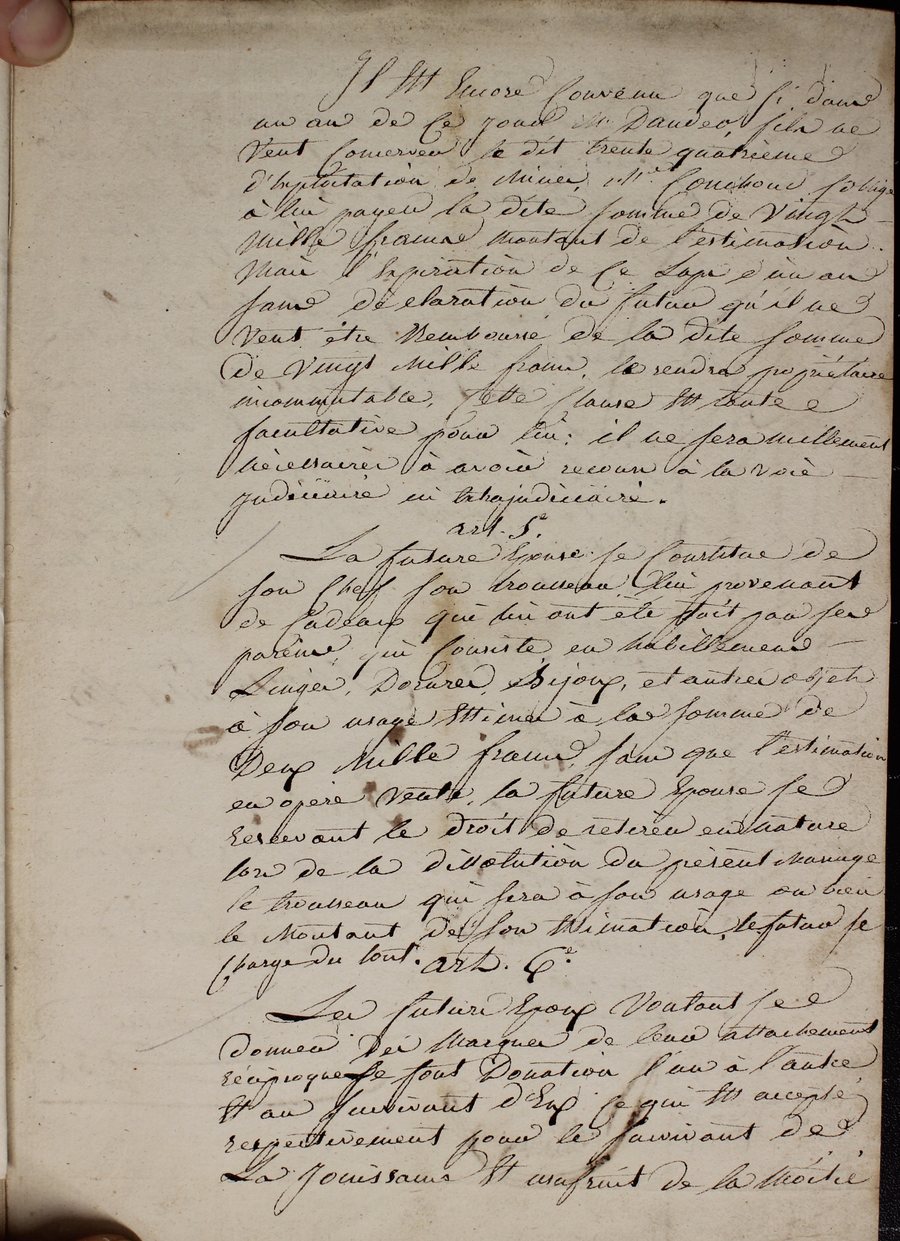 Il est Encore Convenu que si dans
un an de Ce jour Mr. Daudet fils ne
veut Conserver le dit trente quatrieme
d'Exploitation de Mines, Mr. s'oblige
à lui payer la dite somme de Vingt
Mille francs Montant de l'estimation.
Mais l'Expiration de Ce Laps d'un an
sans déclaration du futur qu'il ne
veut être Remboursé de la dite somme
de Vingt Mille francs, le rendra propriétaire
incommutable. Cette Clause est toute
facultative pour lui; il ne sera nullement
nécessaires à avoir recours à la voie
judiciaire ni Extrajudiciaire.
art. 5e.
La future Epouse se Constitue de
son Chef son trousseau, lui provenant
de Cadeaux qui lui ont été fait par ses
parens, qui Consiste en habillemens
Linges, Dorures, Bijoux, et autres objets
à son usage Estimés à la somme de
Deux Mille francs, sans que l'estimation
en opère Vente, la future Epouse se
reservant le droit de retirer en nature
lors de la dissolution du présent Mariage
le trousseau qui sera à son usage ou bien
le Montant de son Estimation, le futur se
Charge du tout.
art. 6e.
Les futurs Epoux Voulant se
donner des Marques de leur attachement
réciproque se font Donation l'un à l'autre
et au survivant d'Eux Ce qui est accepté
respectivement pour le survivant de
La Jouissance et usufruit de la Moitié